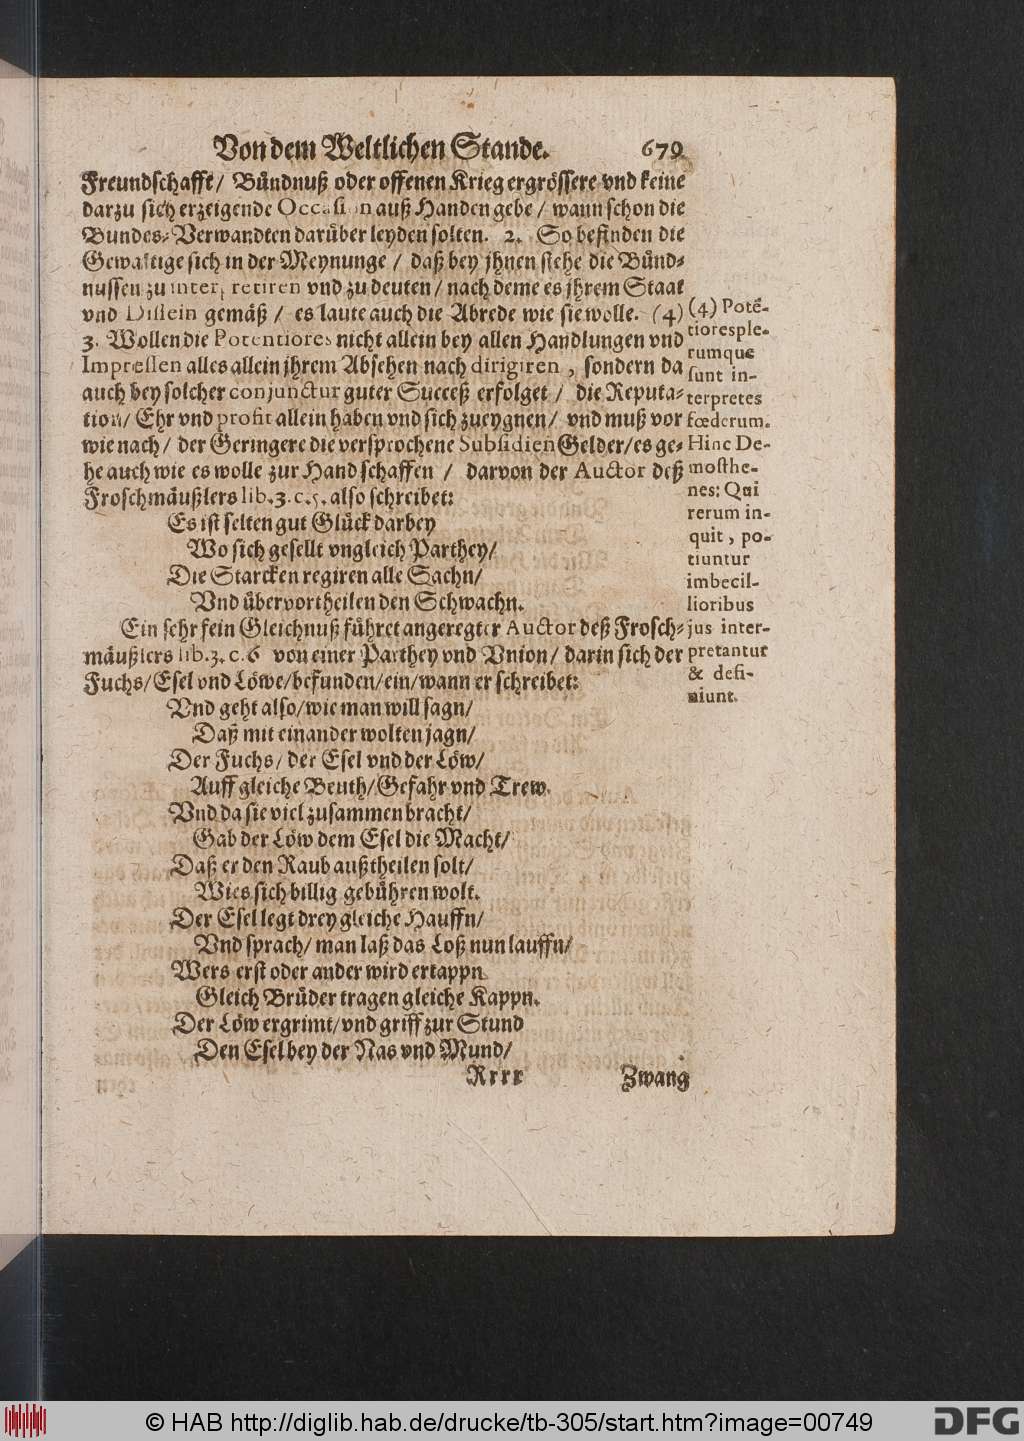 Von dem Weltlichen Stande. 679
Freundschafft/ Bündnuß oder offenen Krieg ergrössere vnd keine
darzu sich erzeigende Occasion auß Handen gebe / wann schon die
Bundes-Verwandten darüber leyden solten. 2. So befinden die
Gewaltige sich in der Meynunge / daß bey jhnen stehe die Bünd-
nussen zu interpretiren vnd zu deuten / nach deme es jhrem Staat
vnd Dissein gemäß / es laute auch die Abrede wie sie wolle. (4)
3. Wollen die Potentiores nicht allein bey allen Handlungen vnd
Impressen alles allein jhrem Absehen nach dirigiren, sondern da
auch bey solcher conjunctur guter Succeß erfolget / die Reputa-
tion/ Ehr vnd profit allein haben vnd sich zueygnen/ vnd muß vor
wie nach/ der Geringere die versprochene Subsidien Gelder/es ge-
he auch wie es wolle zur Hand schaffen / darvon der Auctor deß
Froschmäußlers lib.3.c.5. also schreibet:
Es ist selten gut Glück darbey
Wo sich gesellt vngleich Parthey/
Die Starcken regiren alle Sachn/
Vnd übervortheilen den Schwachn.
Ein sehr fein Gleichnuß führet angeregter Auctor deß Frosch-
mäußlers lib.3.c.6 von einer Parthey vnd Vnion/ darin sich der
Fuchs/Esel vnd Löwe/befunden/ein/wann er schreibet:
Vnd geht also/wie man will sagn/
Daß mit einander wolten jagn/
Der Fuchs/ der Esel vnd der Löw/
Auff gleiche Beuth/Gefahr vnd Trew.
Vnd da sie viel zusammen bracht/
Gab der Löw dem Esel die Macht/
Daß er den Raub außtheilen solt/
Wies sich billig gebühren wolt.
Der Esel legt drey gleiche Hauffn/
Vnd sprach/ man laß das Loß nun lauffn/
Wers erst oder ander wird ertappn.
Gleich Brüder tragen gleiche Kappn.
Der Löw ergrimt/vnd griff zur Stund
Den Esel bey der Nas vnd Mund/
Rrrr Zwang
(4) Potē-
tioresple-
rumque
sunt in-
terpretes
fœderum.
Hinc De-
mosthe-
nes: Qui
rerum in-
quit, po-
tiuntur
imbecil-
lioribus
jus inter-
pretantur
& defi-
niunt.
© HAB http://diglib.hab.de/drucke/tb-305/start.htm?image=00749
DFG